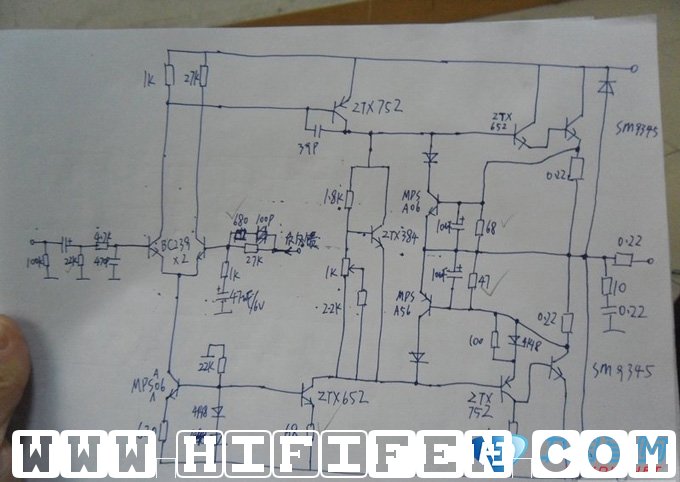 1K
27K
ZTX752
39P
ZTX
652
SM9345
0.22
1.8K
MPS
A06
68
680
100P
负反馈
4.7K
BC239
x2
27K
ZTX384
100K
22K
470P
1K
47uF/16V
1K
2.2K
47
0.22
10
0.22
MPS
A56
0.22
100
4148
SM9345
22K
MPS06
A
ZTX652
ZTX
752
4148
WWW.HIFIFEN.COM